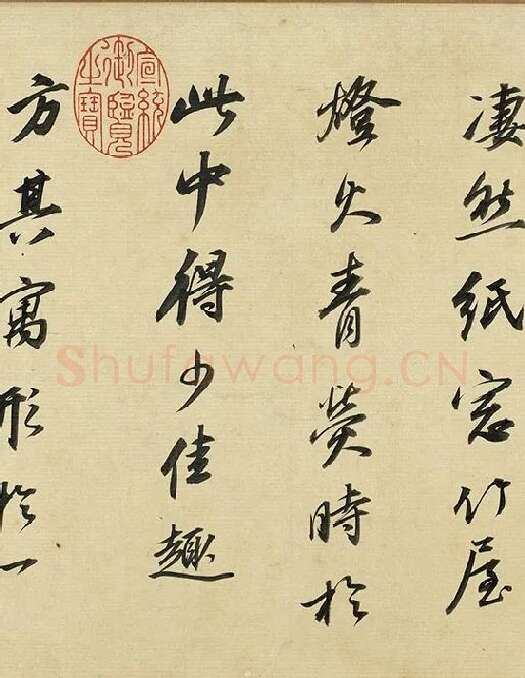 凄然紙窓竹屋
燈火青熒時於
此中得少佳趣
方其寓形於一
宣統御覽之寶
Shufawang.CN